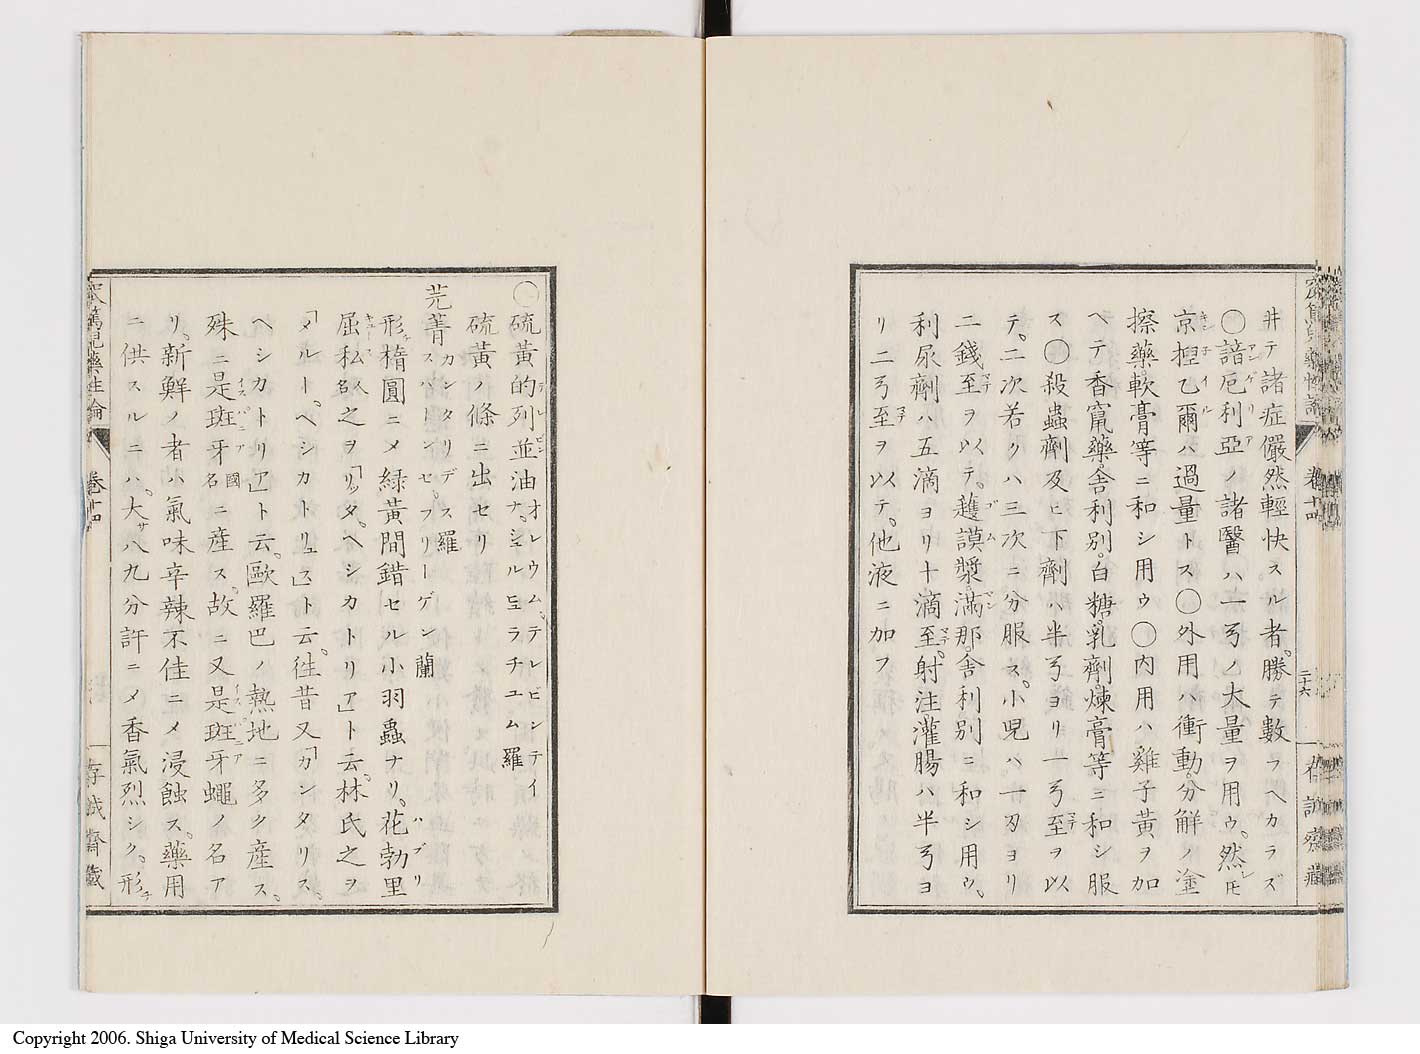 井テ諸症儼然輕快スル者。勝テ數フヘカラズ
〇諳厄利亞ノ諸醫ハ一弓ノ大量ヲ用ウ。然レモ
京揑乙爾ハ過量トス〇外用ハ衝動。分解ノ塗
擦藥。軟膏等ニ和シ用ウ〇內用ハ雞子黃ヲ加
ヘテ香竄藥。舍利別。白糖。乳劑。煉膏等ニ和シ服
ス〇殺蟲劑及ヒ下劑ハ半弓ヨリ一弓至ヲ以
テ。二次若クハ三次ニ分服ス。小兒ハ。一刃ヨリ
二錢至ヲ以テ。護謨漿。滿那。舍利別ニ和シ用ウ。
利尿劑ハ五滴ヨリ十滴至。射注灌腸ハ半弓ヨ
リ二弓至ヲ以テ。他液ニ加フ
卷十四
二十六
存誠齋藏
〇硫黃的列並油 オレウム。テレビンテイナ。シュルヒュラチユム 羅
硫黃ノ條ニ出セリ
芫菁 カンタリデス 羅 スパーンセ。フリーゲン 蘭
形チ楕圓ニメ綠黃間錯セル小羽蟲ナリ。花勃里
屈私 人名 之ヲ「リッタ。ヘシカトリア」ト云。林氏之ヲ
「メルー。ヘシカトリュス」ト云。徃昔又「カンタリス。
ヘシカトリア」ト云。歐羅巴ノ熱地ニ多ク產ス。
殊ニ是班牙 國名 ニ產ス。故ニ又是班牙蠅ノ名ア
リ。新鮮ノ者ハ氣味辛辣不佳ニメ浸蝕ス。藥用
ニ供スルニハ。大サ八九分許ニメ香氣烈シク。形チ
藥性論
卷十四
存誠齋藏
Copyright 2006. Shiga University of Medical Science Library